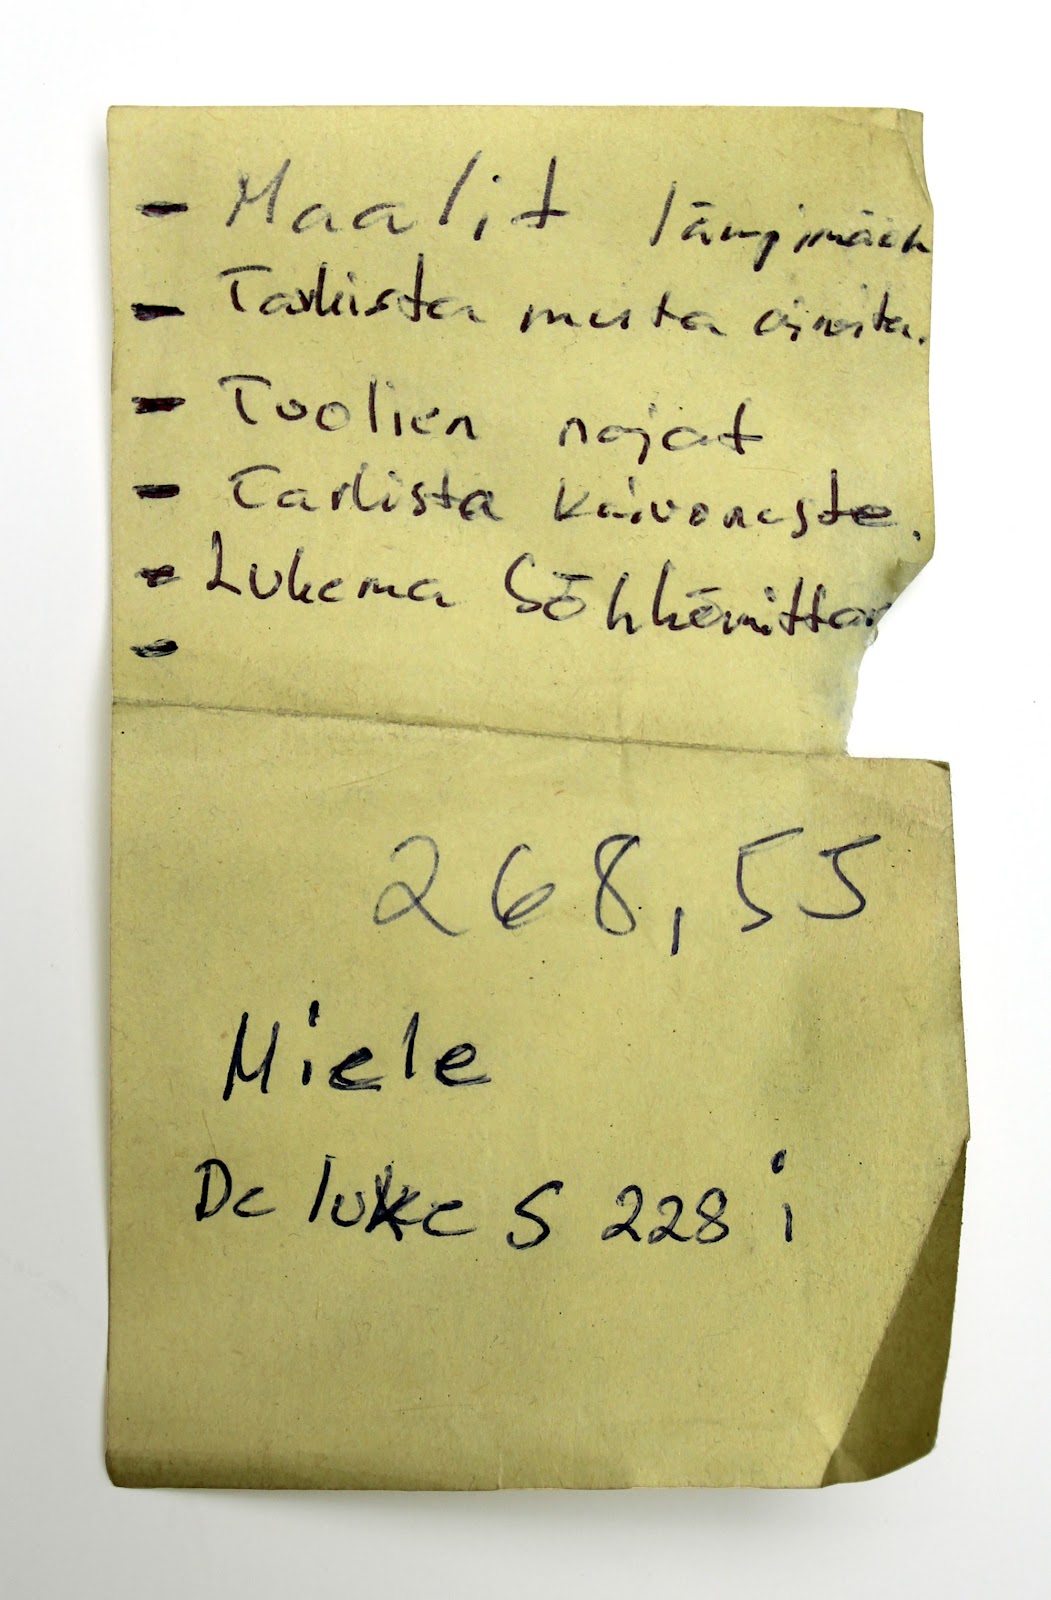 - Maalit lämpimään
- Tarkista musta
- Tuolien nojat
- Tarkista kaivoneste.
- Lukema Sähkömittar
-
268,55
Miele
De luxe S 228 i